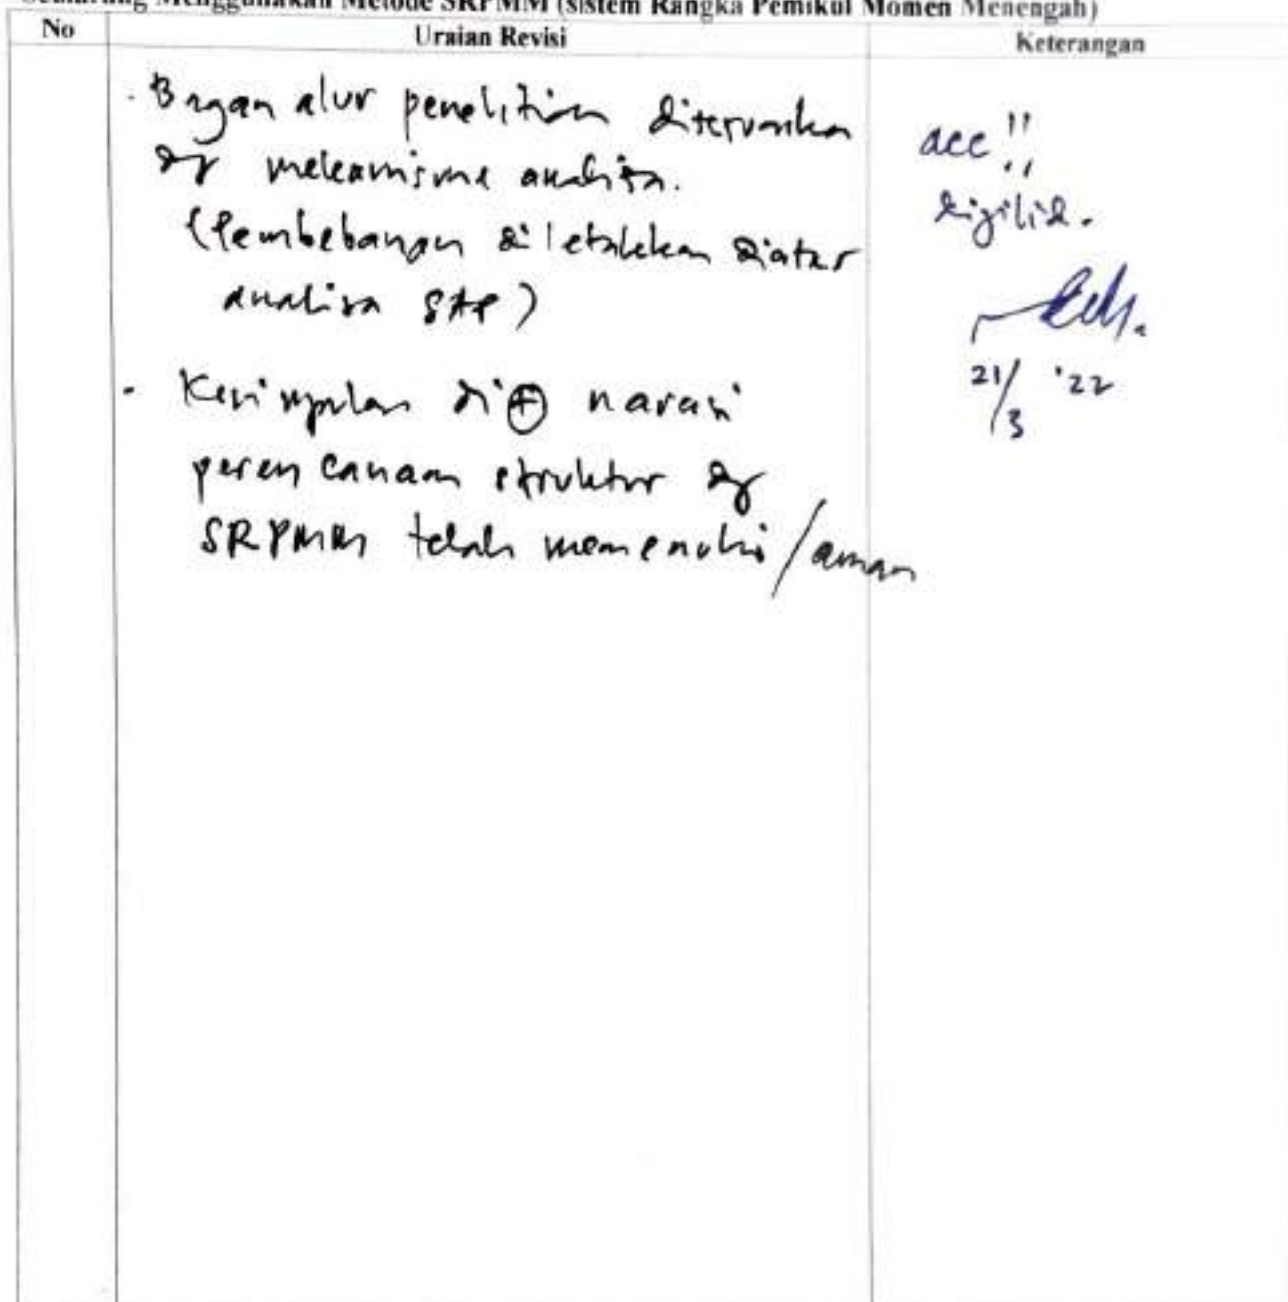 Semarang Menggunakan Metode SRPMM (sistem Rangka Pemikul Momen Menengah)
No
Uraian Revisi
Keterangan
- Bagan alur penelitian
dg mekanisme analisa.
(Pembebanan diletakkan diatas
analisa SAP)
- Kesimpulan di⊕ narasi
perencanaan struktur dg
SRPMM telah memenuhi/aman
acc !!
dijilid.
21/3 '22